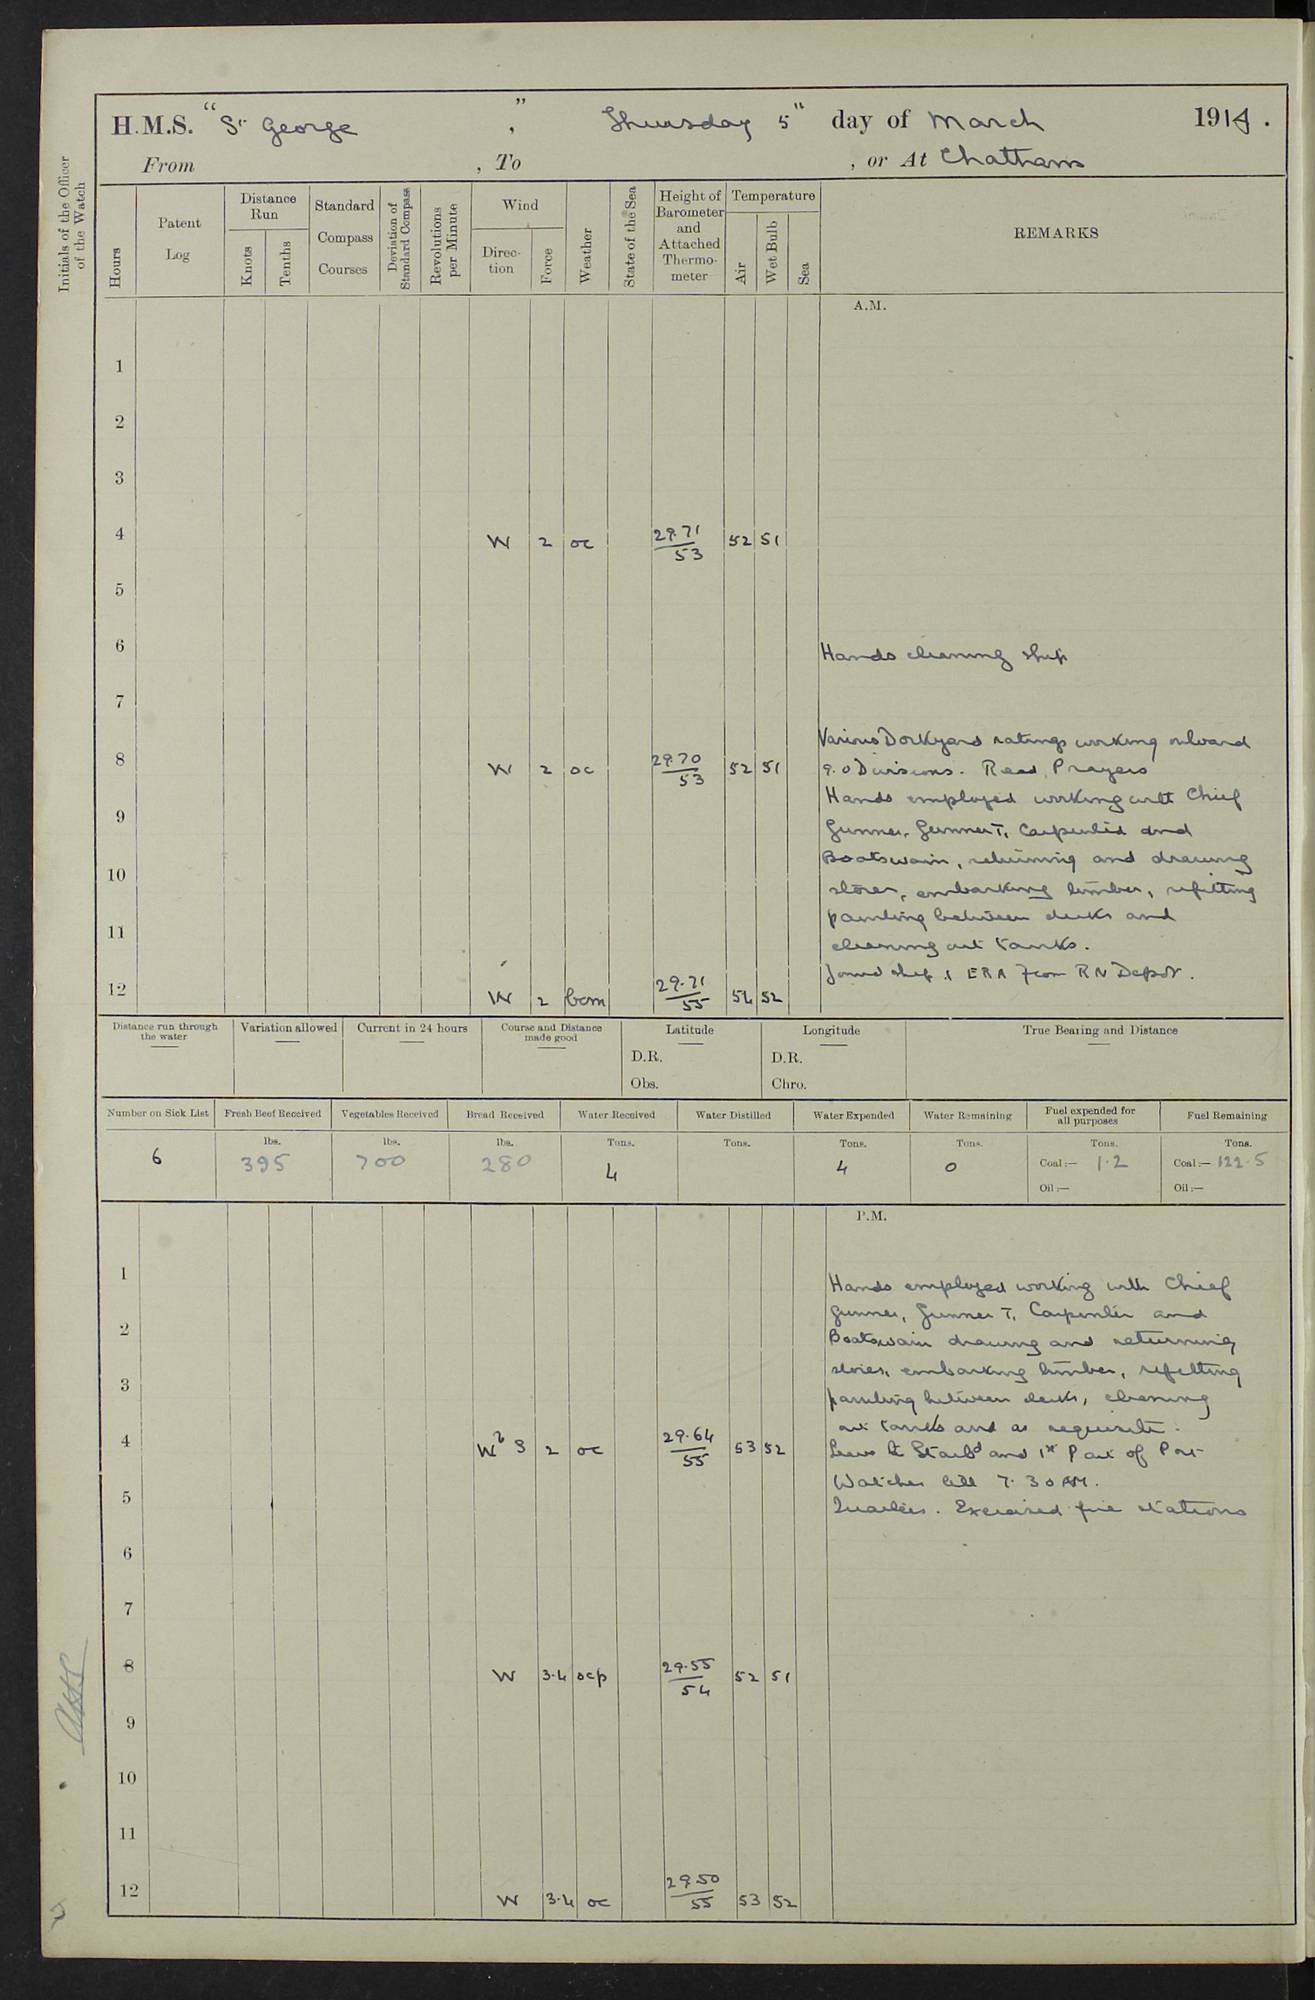 H.M.S. "St George", Thursday 5th day of March 1914.
From , To , or At Chatham
Initials of the Officer of the Watch
Hours
Patent Log
Distance Run
Knots
Tenths
Standard Compass Courses
Deviation of Standard Compass
Revolutions per Minute
Wind
Direction
Force
Weather
State of the Sea
Height of Barometer and Attached Thermometer
Temperature
Air
Wet Bulb
Sea
REMARKS
A.M.
1
2
3
4 W 2 oc 29.71/53 52 51
5
6 Hands cleaning ship
7
Various Dockyard ratings working onboard
8 W 2 oc 29.70/53 52 51 9.0 Divisions. Read Prayers
Hands employed working with Chief
9
Gunner, Gunner T, Carpenter and
Boatswain, returning and drawing
10
stores, embarking timber, refitting
painting between decks and
11
cleaning out tanks.
Joined ship 1 ERA from RN Depot.
12 W 2 bcm 29.71/55 54 52
Distance run through the water
Variation allowed
Current in 24 hours
Course and Distance made good
Latitude
D.R.
Obs.
Longitude
D.R.
Chro.
True Bearing and Distance
Number on Sick List 6
Fresh Beef Received lbs. 395
Vegetables Received lbs. 700
Bread Received lbs. 280
Water Received Tons. 4
Water Distilled Tons.
Water Expended Tons. 4
Water Remaining Tons. 0
Fuel expended for all purposes Tons. Coal:— 1.2 Oil:—
Fuel Remaining Tons. Coal:— 122.5 Oil:—
P.M.
1 Hands employed working with Chief
Gunner, Gunner T, Carpenter and
2
Boatswain drawing and returning
stores, embarking timber, refitting
3
painting between decks, cleaning
out tanks and as requisite.
4 WbS 2 oc 29.64/55 53 52 Leave to Starbd and 1st Part of Port
Watches till 7.30 AM.
5 Quarters. Exercised fire stations
6
7
8 W 3.4 ocp 29.55/54 52 51
9
10
11
12 W 3.4 oc 29.50/55 53 52